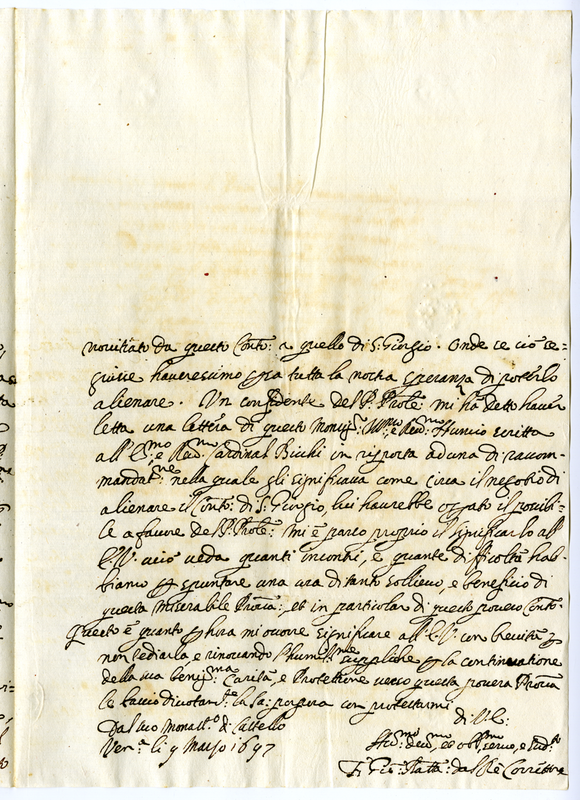 novitiato da questo Conto: a quello di S: Giorgio. Onde se ciò se=
guisse haveressimo persa tutta la nostra speranza di poterlo
alienare. Un confidente del P: Prole: mi hà detto haver
letta una lettera di questo Monsig: Illmo, e Revmo Nuncio scritta
all'Emo, e Revmo Cardinal Bicchi in risposta ad una di raccom-
mandatne nella quale gli significava come circa il negotio di
alienare il Conto: di S: Giorgio, lui haurebbe oprato il possibi-
le a favore del P: Prole: mi è parso proprio il significarlo all'
E.V. acciò veda quanti incontri, e quante difficoltà hab-
biamo per spuntare una cosa di tanto sollievo, e beneficio di
questa miserabile Provcia:, et in particolar di questo povero Conto:
Questo è quanto per hora mi occorre significare all'E.V. con brevità per
non tediarla, e rinovando l'humilme suppliche per la continuatione
della sua benigma Carità, e Protettione verso questa povera Provcia
le faccio divotamte la Sa: porpora con protestarmi
di V.E:
Dal suo Monasto di Castello
Vena li 9 Marzo 1697
Humo devmo, et obbmo servo, e sudto
F. Gio: Batta: da Correttore